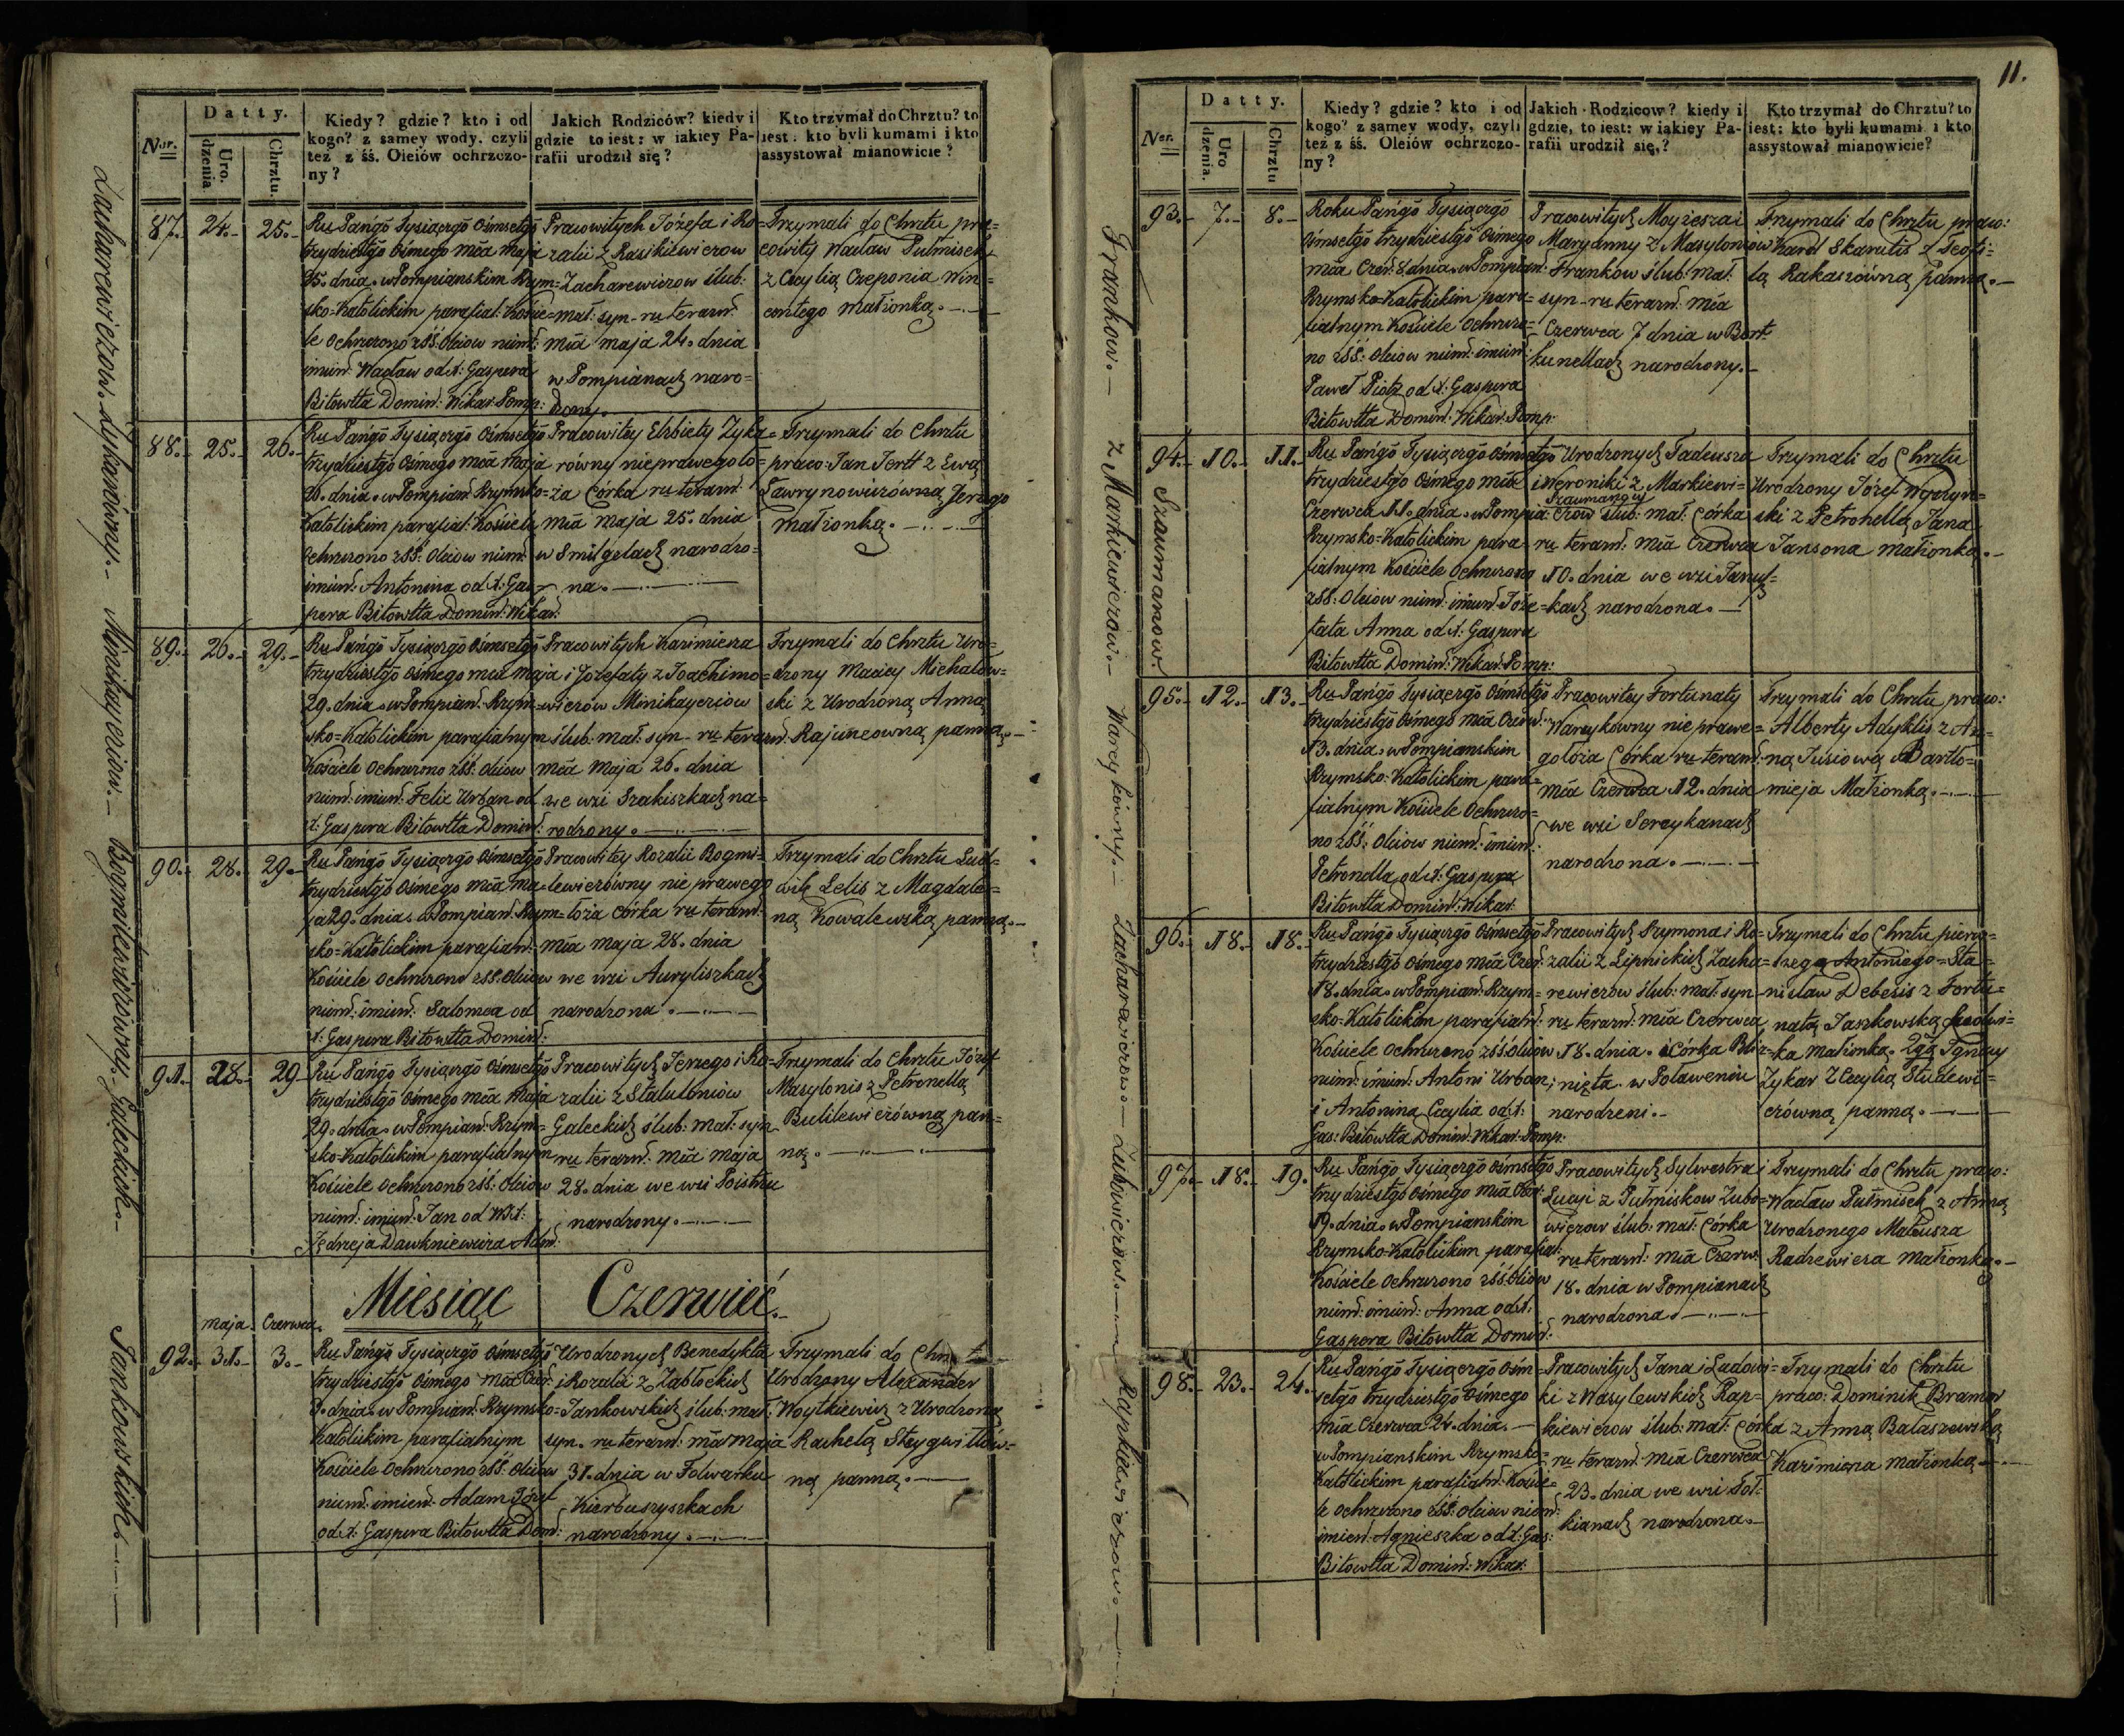 Nr.
Datty.
Uro.
dzenia
Chrztu.
Kiedy? gdzie? kto i od
kogo? z samey wody, czyli
też z śś. Oleiów ochrzczo-
ny?
Jakich Rodziców? kiedy i
gdzie to iest: w iakiey Pa-
rafii urodził się?
Kto trzymał do Chrztu? to
iest: kto byli kumami i kto
assystował mianowicie?
Zacharewiczow.
87.
24.-
25.-
Ru Pańgō Tysiącgō Ośmsetgō
trzydziestgō Ośmego mca Maja
25. dnia w Pompianskim Rzym=
sko=Katolickim parafial: Koście=
le Ochrzczono z śś: Oleiow
imień Wacław od X: Gaspera
Bitowtta Domin: Wikar. Pomp:
Pracowitych Józefa i Ro=
zalii z
Zacharewiczow ślub:
mał: syn- ru teraźn:
mca maja 24. dnia
w Pompianach naro=
dzony.
Trzymali do Chrztu pra=
cowity Wacław Pułmisek
z Cecylią Czeponia Win=
centego małżonką.
88.-
25.-
26.-
Ru Pańgō Tysiącgō Ośmsetgō
trzydziestgō Ośmego mca Maja
26. dnia w Pompian: Rzymsko=
Katolickim parafial: Kościele
Ochrzczono z śś: Oleiow
imień: Antonina od X: Gas=
pera Bitowtta Domin: Wikar:
Pracowitey Elżbiety Zyka=
równy nieprawego ło=
ża Córka ru teraźn:
mca Maja 25. dnia
w Smilgelach narodzo=
na.
Trzymali do Chrztu
praco: Jan z Ewą
Ławrynowiczówną Jerzego
małżonką.
Minikayeciow.-
89.-
26.-
29.-
Ru Pańgō Tysiącgō Ośmsetgō
trzydziestgō Ośmego mca Maja
29. dnia w Pompian: Rzym=
sko=Katolickim parafialnym
Kościele Ochrzczono z śś: Oleiow
imień: Felix Urban od
X: Gaspera Bitowtta Domin:
Pracowitych Kazimierza
i Jozefaty z Joachimo=
wiczow Minikayeciow
ślub: mał: syn- ru teraźn:
mca Maja 26. dnia
we wsi Szakiszkach na=
rodzony.
Trzymali do Chrztu Uro=
dzony Maciey Michałow=
ski z Urodzoną Anną
Rajuncowną panną.
Bogmilewiczówny.-
90.-
28.-
29.-
Ru Pańgō Tysiącgō Ośmsetgō
trzydziestgō Ośmego mca Ma=
ja 29. dnia w Pompian: Rzym=
sko=Katolickim parafian:
Kościele Ochrzczono z śś. Oleiow
imień: Salomea od
X: Gaspera Bitowtta Domin:
Pracowitey Rozalii Bogmi=
lewiczówny nie prawego
łoża Córka ru teraźn:
mca maja 28. dnia
we wsi Auryliszkach
narodzona.
Trzymali do Chrztu Lud=
wik Lelis z Magdale=
ną Kowalewską panną.
Galeckich.-
91.-
28.-
29-
Ru Pańgō Tysiącgō Ośmsetgō
trzydziestgō Ośmego mca Maja
29. dnia w Pompian: Rzym=
sko=Katolickim parafialnym
Kościele Ochrzczono z śś: Oleiow
imień: Jan od WX:
Jędrzeja Dawkniewicza Adm:
Pracowitych Jerzego i Ro=
zalii z Staluloniow
Galeckich ślub: mał: syn
ru teraźn: mca maja
28. dnia we wsi Poistru
narodzony.
Trzymali do Chrztu Józef
Masylonis z Petronellą
Butilewiczówną pan=
ną.
Miesiąc Czerwieć.
maja
Czerwca.
Jankowskich.
92.-
31.-
3.-
Ru Pańgō Tysiącgō Ośmsetgō
trzydziestgō Ośmego mca Czer:
3. dnia w Pompian: Rzymsko=
Katolickim parafialnym
Kościele Ochrzczono z śś: Oleiow
imień: Adam Józef
od X: Gaspera Bitowtta Dom:
Urodzonych Benedykta
i Rozalii z Zabłockich
Jankowskich ślub: mał:
syn. ru teraźn: mca Maja
31. dnia w Folwarku
Kierbuszyszkach
narodzony.
Trzymali do Chrztu
Urodzony Alexander
Woytkiewicz z Urodzoną
Rachelą Steygwiłłów=
ną panną.
11.
Ner.
Datty.
Uro
dzenia.
Chrztu
Kiedy? gdzie? kto i od
kogo? z samey wody, czyli
też z śś. Oleiów ochrzczo-
ny?
Jakich Rodzicow? kiedy i
gdzie, to iest: w iakiey Pa-
rafii urodził się,?
Kto trzymał do Chrztu? to
iest: kto byli kumami i kto
assystował mianowicie?
Frankow.-
93.-
7.-
8.-
Roku Pańgō Tysiącgō
Ośmsetgō trzydziestgō Ośmego
mca Czer: 8 dnia w Pompian:
Rzymsko=Katolickim para=
fialnym Kościele Ochrzczo=
no z śś: Oleiow imień:
Paweł Piotr od X: Gaspera
Bitowtta Domin: Wikar: Pomp:
Pracowitych Moyżesza i
Maryanny z Masyloniow
Frankow ślub: mał.
syn- ru teraźn: mca
Czerwca 7 dnia w Bart=
kunellach narodzony.
Trzymali do Chrztu praco:
Karol Skarulis z Teofi=
lą Rakaszówną panną.
z Markiewiczow.- Szaumanow
94.-
10.-
11.-
Ru Pańgō Tysiącgō Ośmsetgō
trzydziestgō Ośmego mca
Czerwca 11. dnia w Pompia:
Rzymsko=Katolickim para=
fialnym Kościele Ochrzczono
z śś: Oleiow imień: Joze=
fata Anna od X: Gaspera
Bitowtta Domin: Wikar: Pomp:
Urodzonych Tadeusza
i Weroniki z Markiewi=
Szaumanow
czow ślub: mał: Córka
ru teraźn: mca Czerwca
10. dnia we wsi Janusz=
kach narodzona.
Trzymali do Chrztu
Urodzony Józef Wyrzyn=
ski z Petronellą Jana
Jansona małżonką.
Wareykówny.-
95.-
12.-
13.-
Ru Pańgō Tysiącgō Ośmsetgō
trzydziestgō Ośmego mca Czerw:
13. dnia w Pompianskim
Rzymsko=Katolickim para=
fialnym Kościele Ochrzczo=
no z śś: Oleiow imień:
Petronella od X: Gaspera
Bitowtta Domin: Wikar:
Pracowitey Fortunaty
Wareykowny nie prawe=
go łoża Córka ru teraźn:
mca Czerwca 12. dnia
we wsi Sereykanach
narodzona.
Trzymali do Chrztu praco:
Alberty Adyklis z An=
ną Jusiową Bartło=
mieja Małżonką.
Zacharewiczow.-
96.-
18.-
18.-
Ru Pańgō Tysiącgō Ośmsetgō
trzydziestgō Ośmego mca Czer:
18. dnia w Pompian: Rzym=
sko=Katolickim parafialn:
Kościele Ochrzczono z śś Oleiow
imień: Antoni Urban,
i Antonina Cecylia od X:
Gas: Bitowtta Domin: Wikar: Pomp:
Pracowitych Szymona i Ro=
zalii z Lipnickich Zacha=
rewiczow ślub: mał: syn
ru teraźn: mca Czerwca
18. dnia. i Córka Bliź=
nięta w Poławeniu
narodzeni.
Trzymali do Chrztu pierw=
szego Antoniego=Sta=
nisław Debesis z Fortu=
natą Jaszkowską Ludwi=
ka małżonką. 2gą Ignacy
Zykar z Cecylią Studewi=
czówną panną.
Zubowiczow.-
97.-
18.-
19.
Ru Pańgō Tysiącgō Ośmsetgō
trzydziestgō Ośmego mca Czer:
19. dnia w Pompianskim
Rzymsko=Katolickim parafial:
Kościele Ochrzczono z śś. Oleiow
imień: Anna od X.
Gaspera Bitowtta Domin:
Pracowitych Sylwestra i
Łucyi z Pułmiskow Zubo=
wiczow ślub: mał: Córka
ru teraźn: mca Czerw:
18. dnia w Pompianach
narodzona.
Trzymali do Chrztu praco:
Wacław Pułmisek z Anną
Urodzonego Mateusza
Radzewicza małżonką.
Rapkiewiczow.
98.-
23.-
24.-
Ru Pańgō Tysiącgō Ośm=
setgō trzydziestgō Ośmego
mca Czerwca 24. dnia.
w Pompianskim Rzymsko=
Katolickim parafialn: Koście=
le Ochrzczono z śś: Oleiow
imień: Agnieszka od X: Gas:
Bitowtta Domin: Wikar:
Pracowitych Jana i Ludowi=
ki z Wasylewskich Rap=
kiewiczow ślub: mał: Córka
ru teraźn: mca Czerwca
23. dnia we wsi Toł=
kianach narodzona.
Trzymali do Chrztu
praco: Dominik Bramar
z Anną Bałaszewską
Kazimierza małżonką.